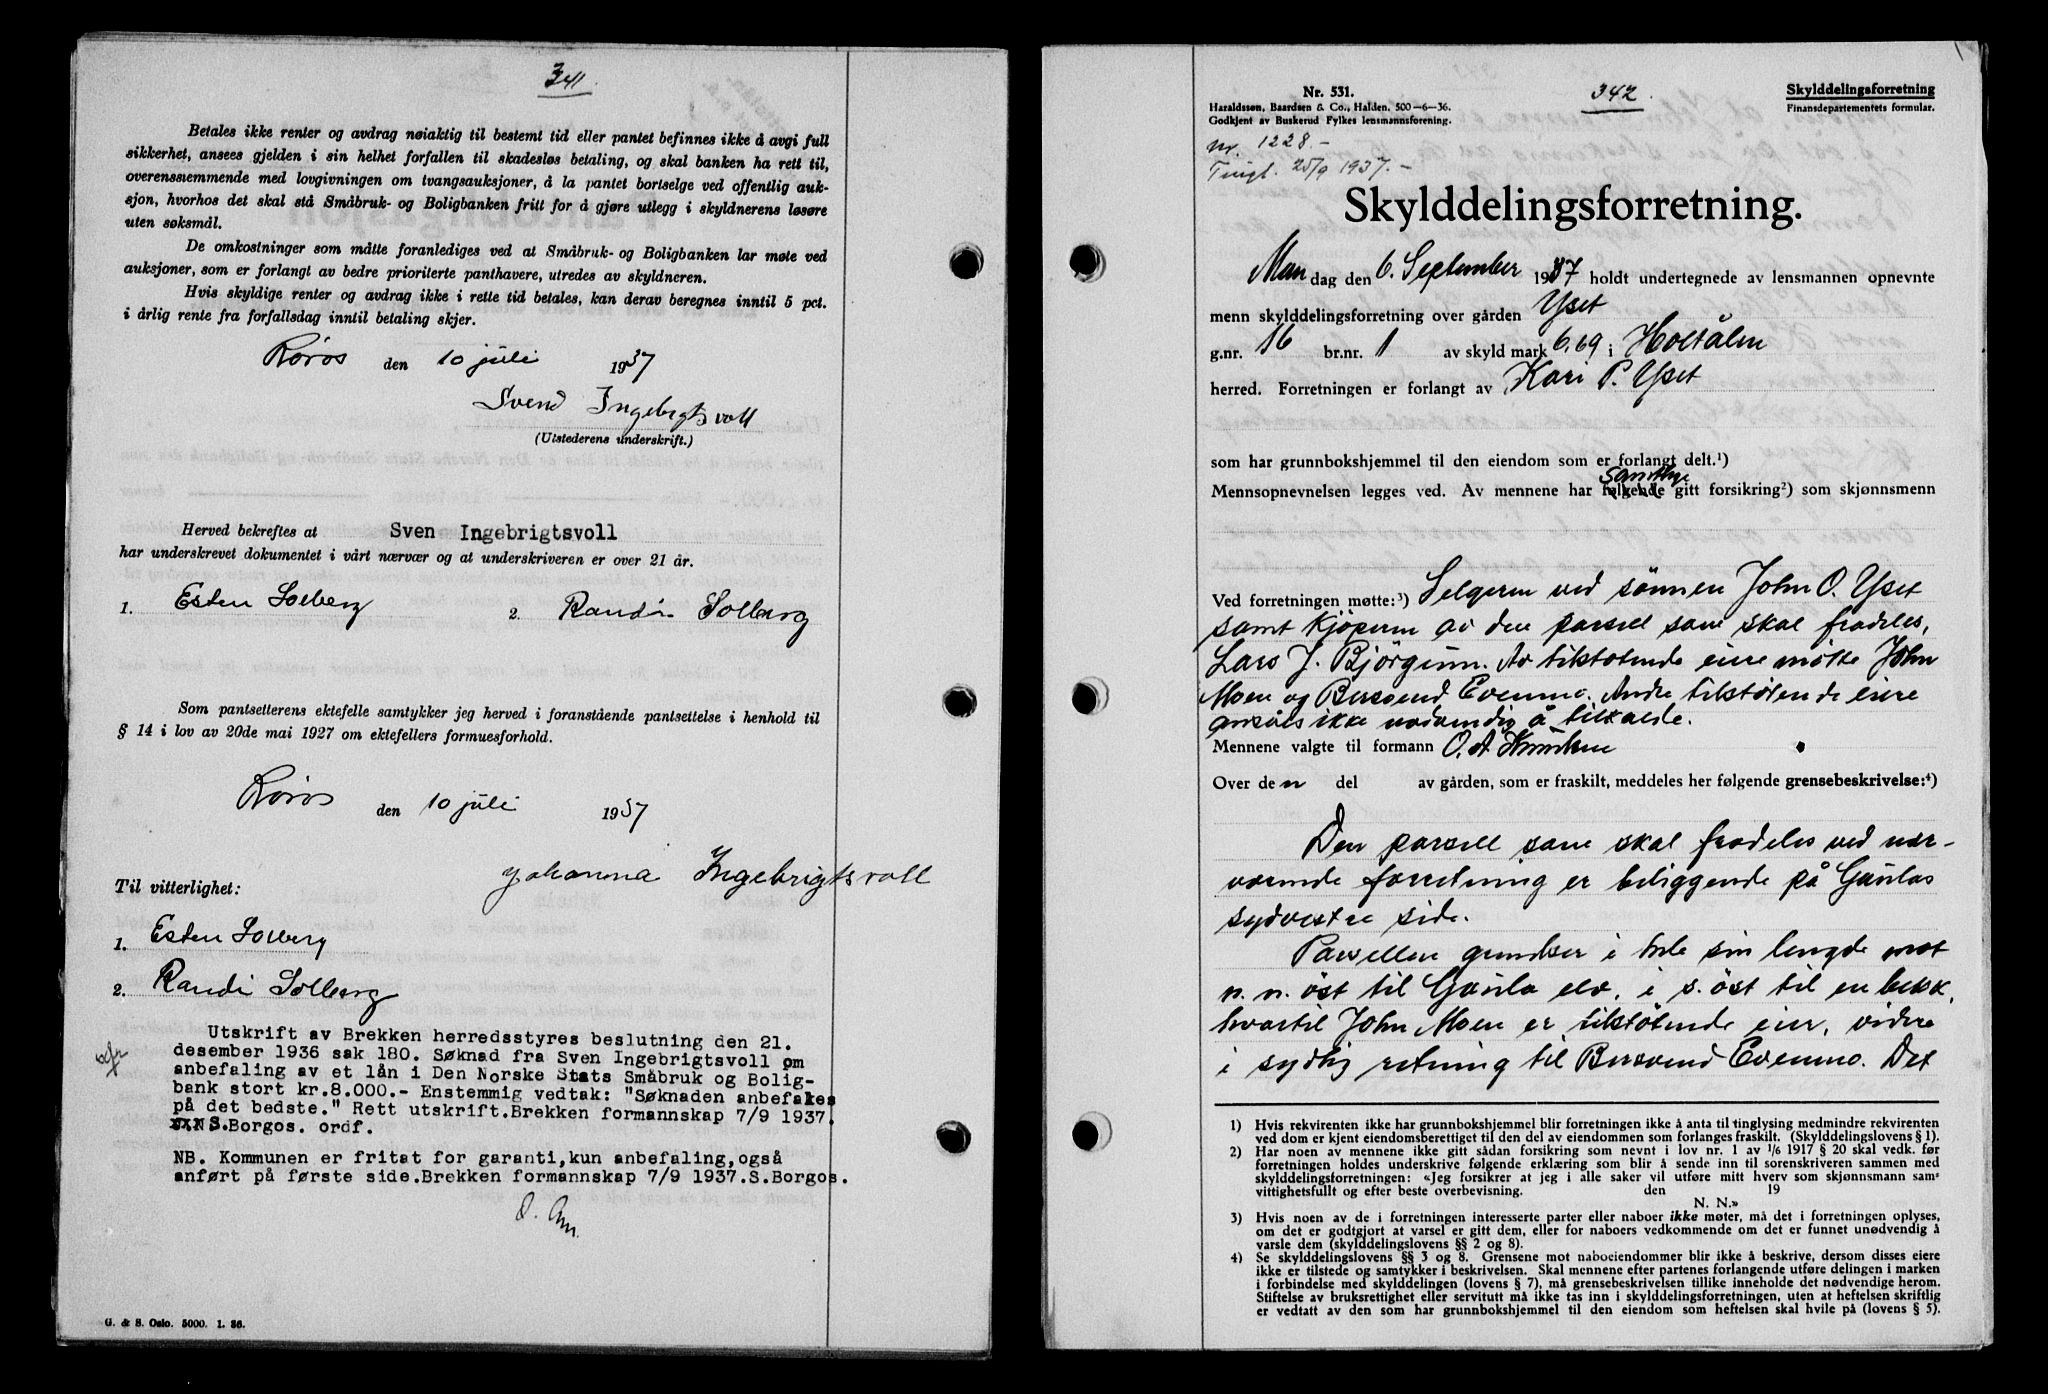 341.
Betales ikke renter og avdrag nøiaktig til bestemt tid eller pantet befinnes ikke å avgi full
sikkerhet, ansees gjelden i sin helhet forfallen til skadesløs betaling, og skal banken ha rett til,
overensstemmende med lovgivningen om tvangsauksjoner, å la pantet bortselge ved offentlig auk-
sjon, hvorhos det skal stå Småbruk- og Boligbanken fritt for å gjøre utlegg i skyldnerens løsøre
uten søksmål.
De omkostninger som måtte foranlediges ved at Småbruk- og Boligbanken lar møte ved
auksjoner, som er forlangt av bedre prioriterte panthavere, utredes av skyldneren.
Hvis skyldige renter og avdrag ikke i rette tid betales, kan derav beregnes inntil 5 pct.
i årlig rente fra forfallsdag inntil betaling skjer.
Røros den 10 juli 1937
Svend Ingebrigtsvoll
(Utstederens underskrift.)
Herved bekreftes at Sven Ingebrigtsvoll
har underskrevet dokumentet i vårt nærvær og at underskriveren er over 21 år.
1. Esten Solberg 2. Randi Solberg
Som pantsetterens ektefelle samtykker jeg herved i foranstående pantsettelse i henhold til
§ 14 i lov av 20de mai 1927 om ektefellers formuesforhold.
Røros den 10 juli 1937
Johanna Ingebrigtsvoll
Til vitterlighet:
1. Esten Solberg
2. Randi Solberg
Utskrift av Brekken herredsstyres beslutning den 21.
desember 1936 sak 180. Søknad fra Sven Ingebrigtsvoll om
anbefaling av et lån i Den Norske Stats Småbruk og Bolig-
bank stort kr.8.000.- Enstemmig vedtak: "Søknaden anbefales
på det bedste." Rett utskrift.Brekken formannskap 7/9 1937.
S.Borgos. ordf.
NB. Kommunen er fritat for garanti,kun anbefaling,også
anført på første side.Brekken formannskap 7/9 1937.S.Borgos.
G. & S. Oslo. 5000. 1. 36.
Nr. 531.
Haraldssøn, Baardsen & Co., Halden. 500-6-36.
Godkjent av Buskerud Fylkes lensmannsforening.
342.
Skylddelingsforretning
Finansdepartementets formular.
nr. 1228.-
Tingl. 25/9 1937.-
Skylddelingsforretning.
Mandag den 6. September 1937 holdt undertegnede av lensmannen opnevnte
menn skylddelingsforretning over gården Yset
g.nr. 16 br.nr. 1 av skyld mark 6.69 i Holtålen
herred. Forretningen er forlangt av Kari P. Yset
som har grunnbokshjemmel til den eiendom som er forlangt delt.¹)
Mennsopnevnelsen legges ved. Av mennene har følgende samtlige gitt forsikring²) som skjønnsmenn
Ved forretningen møtte:³) Selgeren ved sønnen John O. Yset
samt kjøperen av den parsell som skal fradeles,
Lars J. Bjørgum. Av tilstøtende eiere møtte John
Moen og Bersvend Evenmo. Andre tilstøtende eiere
ansåes ikke nødvendig å tilkalde.
Mennene valgte til formann O. A. Knudsen
Over den del av gården, som er fraskilt, meddeles her følgende grensebeskrivelse:⁴)
Den parsell som skal fradeles ved nær-
værende forretning er beliggende på Gaulas
sydvestre side.
Parsellen grendser i hele sin lengde mot
n. n. öst til Gaula elv, i s. öst til en bekk,
hvartil John Moen er tilstøtende eier, videre
i sydlig retning til Bersvend Evenmo. Det
1) Hvis rekvirenten ikke har grunnbokshjemmel blir forretningen ikke å anta til tinglysing medmindre rekvirenten
ved dom er kjent eiendomsberettiget til den del av eiendommen som forlanges fraskilt. (Skylddelingslovens § 1).
2) Har noen av mennene ikke gitt sådan forsikring som nevnt i lov nr. 1 av 1/6 1917 § 20 skal vedk. før
forretningen holdes underskrive følgende erklæring som blir å sende inn til sorenskriveren sammen med
skylddelingsforretningen: «Jeg forsikrer at jeg i alle saker vil utføre mitt hverv som skjønnsmann sam-
vittighetsfullt og efter beste overbevisning. den 19
N. N.»
3) Hvis noen av de i forretningen interesserte parter eller naboer ikke møter, må det i forretningen oplyses,
om det er godtgjort at varsel er gitt dem, eller for naboers vedkommende om det er funnet unødvendig å
varsle dem (skylddelingslovens §§ 2 og 8).
4) Se skylddelingslovens §§ 3 og 8. Grensene mot naboeiendommer blir ikke å beskrive, dersom disses eiere
ikke er tilstede og samtykker i beskrivelsen. Skal mennene efter partenes forlangende utføre delingen i marken
i forbindelse med skylddelingen (lovens § 7), må grensebeskrivelsen tillike inneholde det nødvendige herom.
Stiftelse av bruksrettighet eller servitutt må ikke tas inn i skylddelingsforretningen, uten at heftelsen skriftlig
er vedtatt av den som har grunnbokshjemmel til den eiendom som heftelsen skal hvile på (lovens § 5).